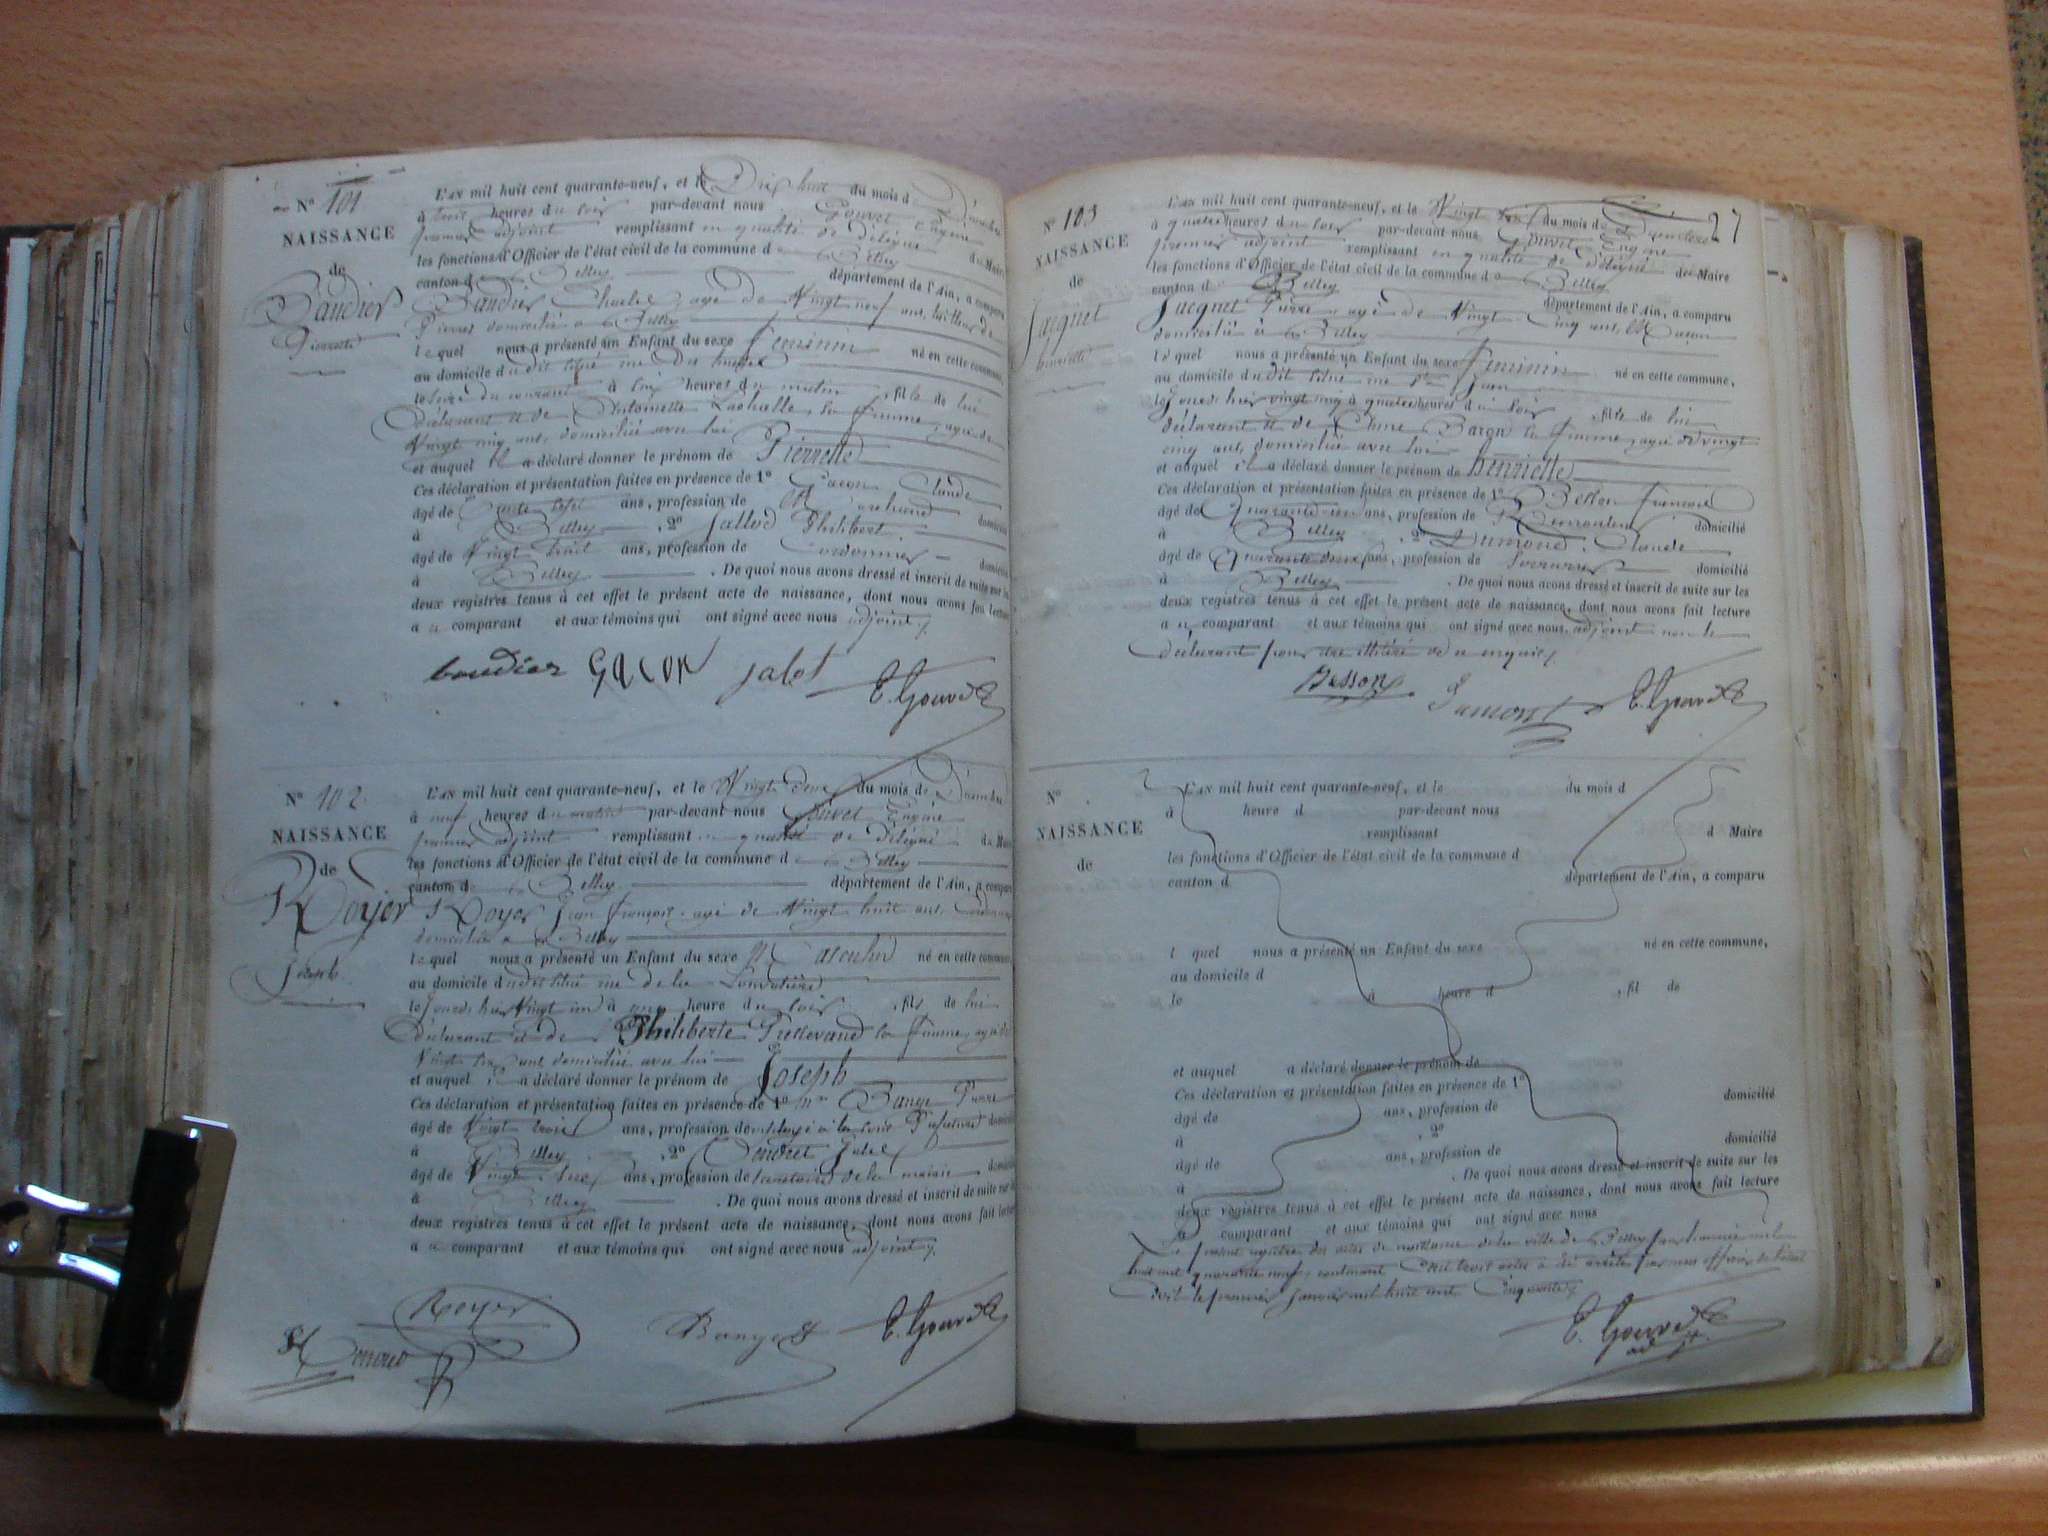 N° 101
NAISSANCE
de
Baudier
Pierrette
L'AN mil huit cent quarante-neuf, et le Dix huit du mois de Décembre
à trois heures du soir par-devant nous Gouvet Eugène
premier adjoint remplissant en qualité de délégué du Maire
les fonctions d'Officier de l'état civil de la commune de Belley
canton de Belley département de l'Ain, a comparu
Baudier Charles, agé de Vingt neuf ans, tailleur de
Pierres domicilié à Belley
lequel nous a présenté un Enfant du sexe féminin né en cette commune,
au domicile dudit situé rue du
le seize du courant à six heures du matin, fille de lui
déclarant et de Antoinette sa femme, agée de
Vingt cinq ans, domiciliée avec lui
et auquel il a déclaré donner le prénom de Pierrette
Ces déclaration et présentation faites en présence de 1° Gacon Claude
âgé de Trente ans, profession de domicilié
à Belley, 2° Jallod Philibert
âgé de Vingt huit ans, profession de Cordonnier domicilié
à Belley. De quoi nous avons dressé et inscrit de suite sur les
deux registres tenus à cet effet le présent acte de naissance, dont nous avons fait lecture
au comparant et aux témoins qui ont signé avec nous adjoint.
baudier Gacon jalot E. Gouvet
N° 102
NAISSANCE
de
Royer
Joseph
L'AN mil huit cent quarante-neuf, et le Vingt deux du mois de Décembre
à neuf heures du matin par-devant nous Gouvet Eugène
premier adjoint remplissant en qualité de délégué du Maire
les fonctions d'Officier de l'état civil de la commune de Belley
canton de Belley département de l'Ain, a comparu
Royer Jean françois, agé de Vingt huit ans,
domicilié à Belley
lequel nous a présenté un Enfant du sexe Masculin né en cette commune
au domicile dudit situé rue de la
le jour d'hier Vingt un à une heure du soir, fils de lui
déclarant et de Philiberte sa femme, agée de
Vingt ans domiciliée avec lui
et auquel il a déclaré donner le prénom de Joseph
Ces déclaration et présentation faites en présence de 1° Mr Bange Pierre
âgé de Vingt trois ans, profession de employé à la sous Préfecture domicilié
à Belley, 2°
âgé de Vingt ans, profession de secrétaire de la mairie domicilié
à Belley. De quoi nous avons dressé et inscrit de suite sur les
deux registres tenus à cet effet le présent acte de naissance, dont nous avons fait lecture
au comparant et aux témoins qui ont signé avec nous adjoint.
Royer
Bange E. Gouvet
27
N° 103
NAISSANCE
de
Jacquet
henriette
L'AN mil huit cent quarante-neuf, et le Vingt six du mois de Décembre
à quatre heures du soir par-devant nous Gouvet Eugène
premier adjoint remplissant en qualité de délégué du Maire
les fonctions d'Officier de l'état civil de la commune de Belley
canton de Belley département de l'Ain, a comparu
Jacquet Pierre, agé de Vingt Cinq ans, Maçon
domicilié à Belley
lequel nous a présenté un Enfant du sexe féminin né en cette commune,
au domicile dudit situé rue St Jean
le Jour d'hier vingt cinq à quatre heures du soir, fille de lui
déclarant et de Baron sa femme, agée de vingt
cinq ans, domiciliée avec lui
et auquel il a déclaré donner le prénom de henriette
Ces déclaration et présentation faites en présence de 1° Besson françois
âgé de Quarante ans, profession de Rémouleur domicilié
à Belley, 2° Dumond Claude
âgé de Quarante deux ans, profession de Serrurier domicilié
à Belley. De quoi nous avons dressé et inscrit de suite sur les
deux registres tenus à cet effet le présent acte de naissance, dont nous avons fait lecture
au comparant et aux témoins qui ont signé avec nous adjoint non le
déclarant pour être illitéré de ce enquis.
Besson Dumont E. Gouvet
N°
NAISSANCE
de
L'AN mil huit cent quarante-neuf, et le du mois d
à heure d par-devant nous
remplissant d Maire
les fonctions d'Officier de l'état civil de la commune d
canton d département de l'Ain, a comparu
l quel nous a présenté un Enfant du sexe né en cette commune,
au domicile d
le à heure d , fil de
et auquel a déclaré donner le prénom de
Ces déclaration et présentation faites en présence de 1°
âgé de ans, profession de domicilié
à , 2°
âgé de ans, profession de domicilié
à . De quoi nous avons dressé et inscrit de suite sur les
deux registres tenus à cet effet le présent acte de naissance, dont nous avons fait lecture
a comparant et aux témoins qui ont signé avec nous
Le présent registre des actes de naissance de la ville de Belley pour l'année mil
huit cent quarante neuf, contenant Cent trois actes a été arrêté par nous officier de l'état
Civil le premier Janvier mil huit cent Cinquante.
E. Gouvet
adjt